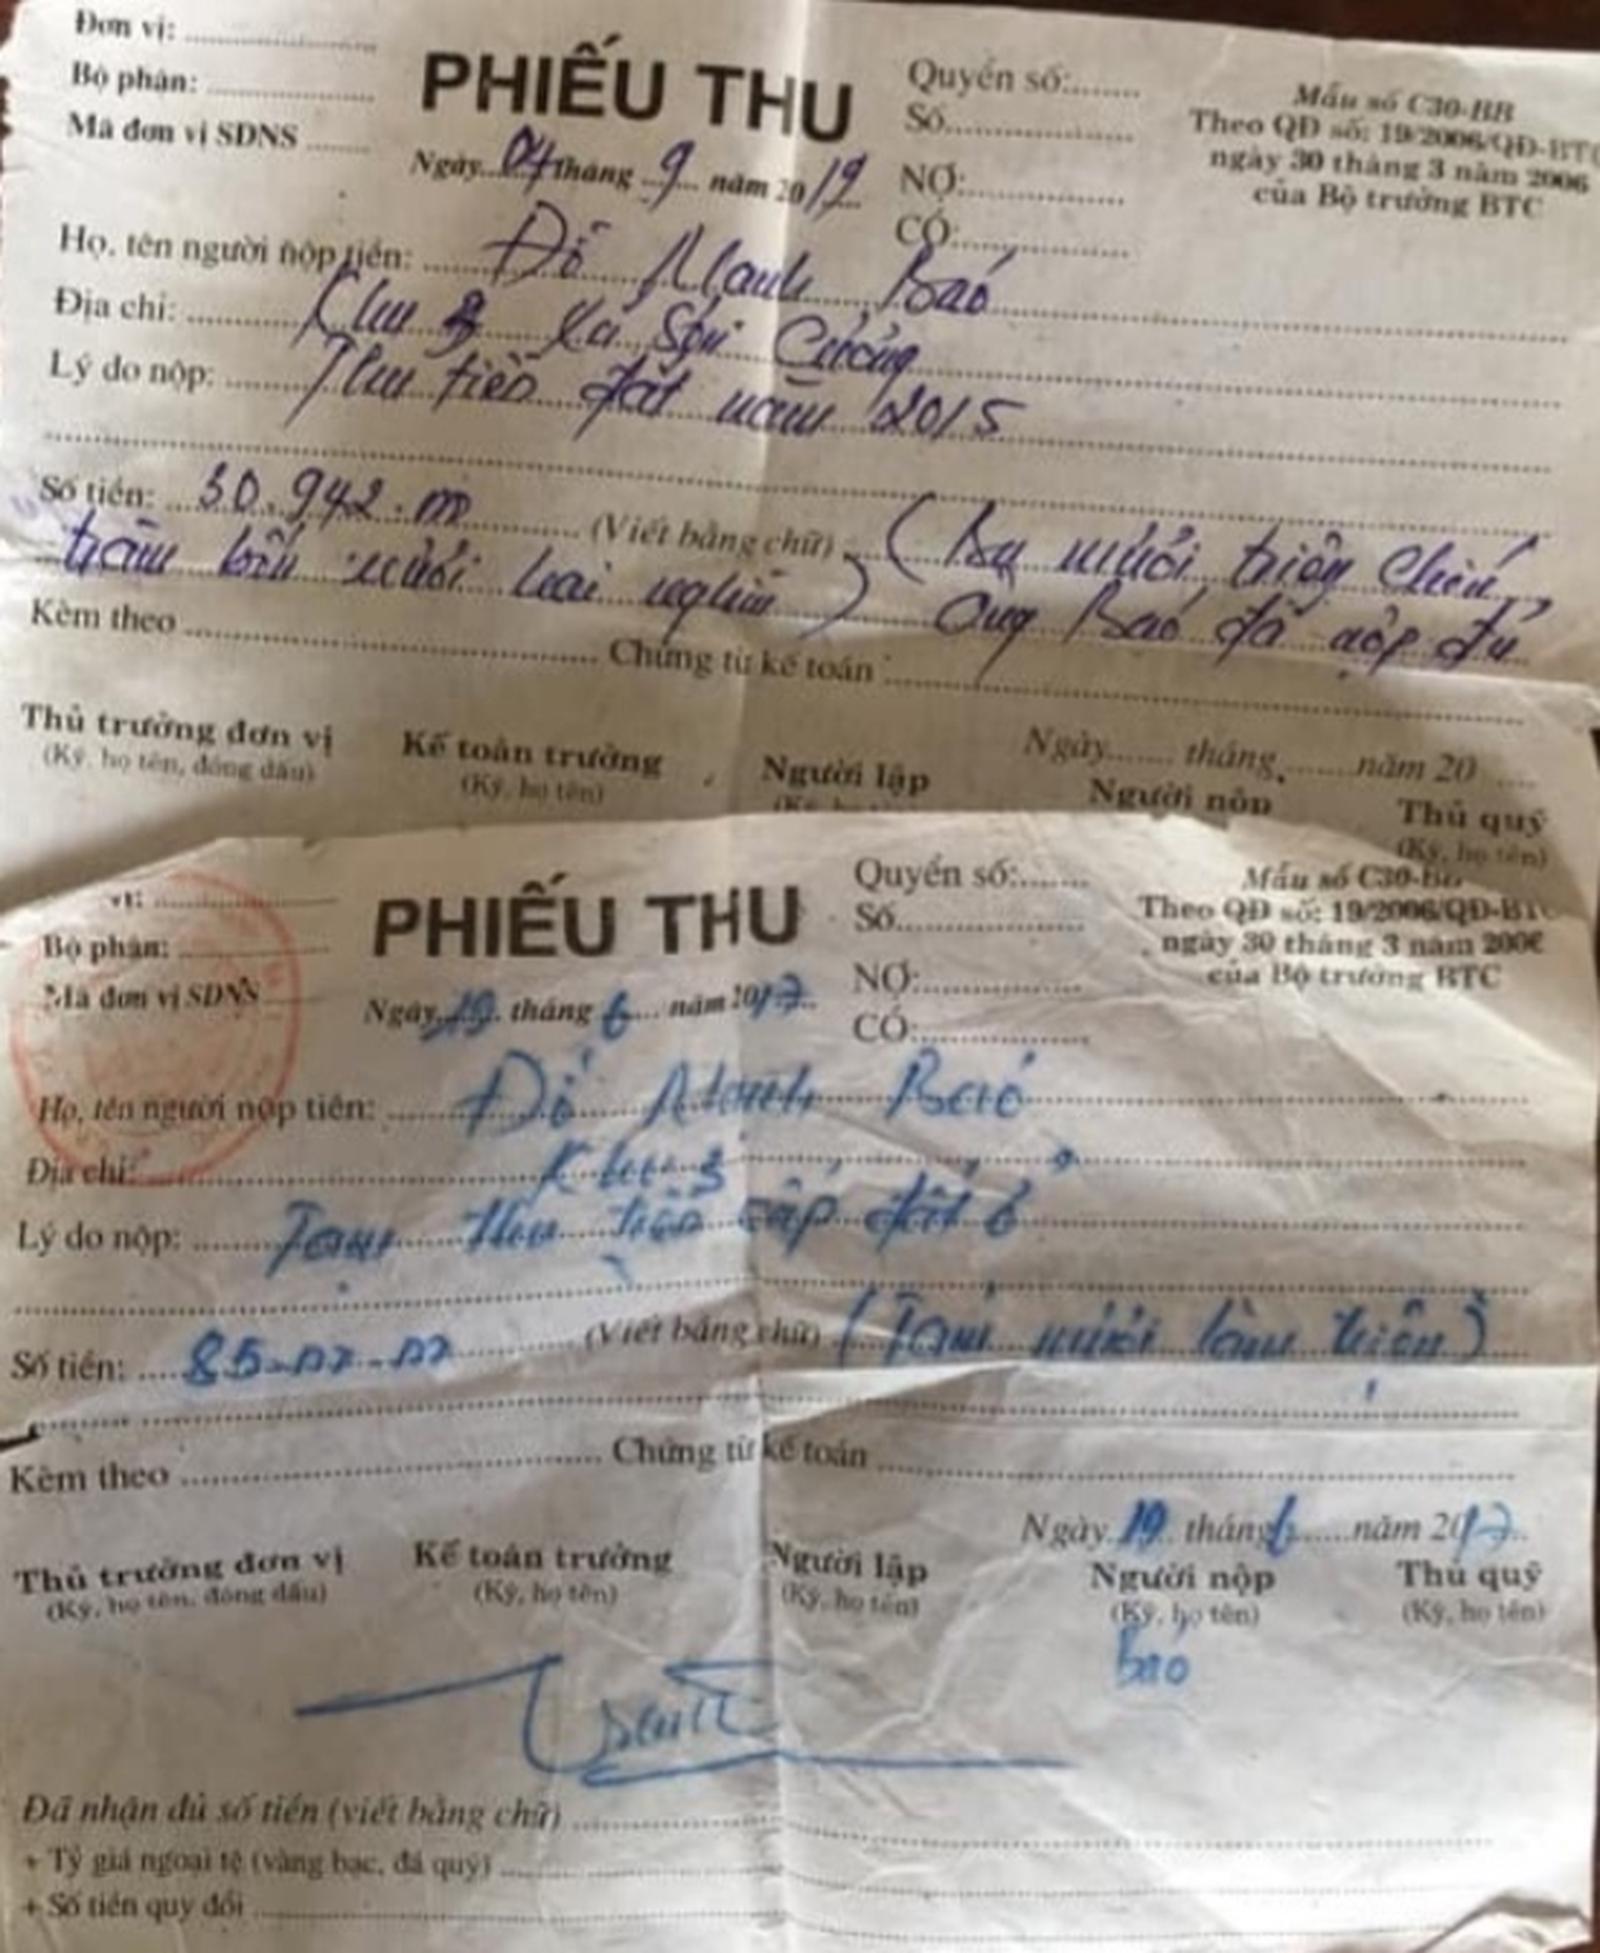 Đơn vị: ........
Bộ phận: ........
Mã đơn vị SDNS ......
PHIẾU THU
Ngày 04 tháng 9 năm 2019
Quyển số:.......
Số...............
NỢ:...............
CÓ:...............
Mẫu số C30-BB
Theo QĐ số: 19/2006/QĐ-BTC
ngày 30 tháng 3 năm 2006
của Bộ trưởng BTC
Họ, tên người nộp tiền: Đỗ Mạnh Báo
Địa chỉ: Khu 3 Xã Sơn Cương
Lý do nộp: Thu tiền đất năm 2015
Số tiền: 30.942.000 (Viết bằng chữ) (Ba mươi triệu chín
trăm bốn mươi hai nghìn) Ông Báo đã nộp đủ
Kèm theo ........ Chứng từ kế toán ........
Ngày....... tháng.......năm 20 ....
Thủ trưởng đơn vị
(Ký, họ tên, đóng dấu)
Kế toán trưởng
(Ký, họ tên)
Người lập
(Ký, họ tên)
Người nộp
Thủ quỹ
(Ký, họ tên)
vị: ........
Bộ phận: ........
Mã đơn vị SDNS
PHIẾU THU
Ngày 19 tháng 6 năm 2017
Quyển số:.......
Số...............
NỢ:...............
CÓ:...............
Mẫu số C30-BB
Theo QĐ số: 19/2006/QĐ-BTC
ngày 30 tháng 3 năm 2006
của Bộ trưởng BTC
Họ, tên người nộp tiền: Đỗ Mạnh Báo
Địa chỉ: Khu 3
Lý do nộp: Tạm thu tiền cấp đất ở
Số tiền: 85.000.000 (Viết bằng chữ) (Tám mươi lăm triệu)
Kèm theo ........ Chứng từ kế toán ........
Ngày 19 tháng 6 năm 2017
Thủ trưởng đơn vị
(Ký, họ tên, đóng dấu)
Kế toán trưởng
(Ký, họ tên)
Người lập
(Ký, họ tên)
Người nộp
(Ký, họ tên)
Thủ quỹ
(Ký, họ tên)
Báo
Đã nhận đủ số tiền (viết bằng chữ) ........
+ Tỷ giá ngoại tệ (vàng bạc, đá quý) ........
+ Số tiền quy đổi ........